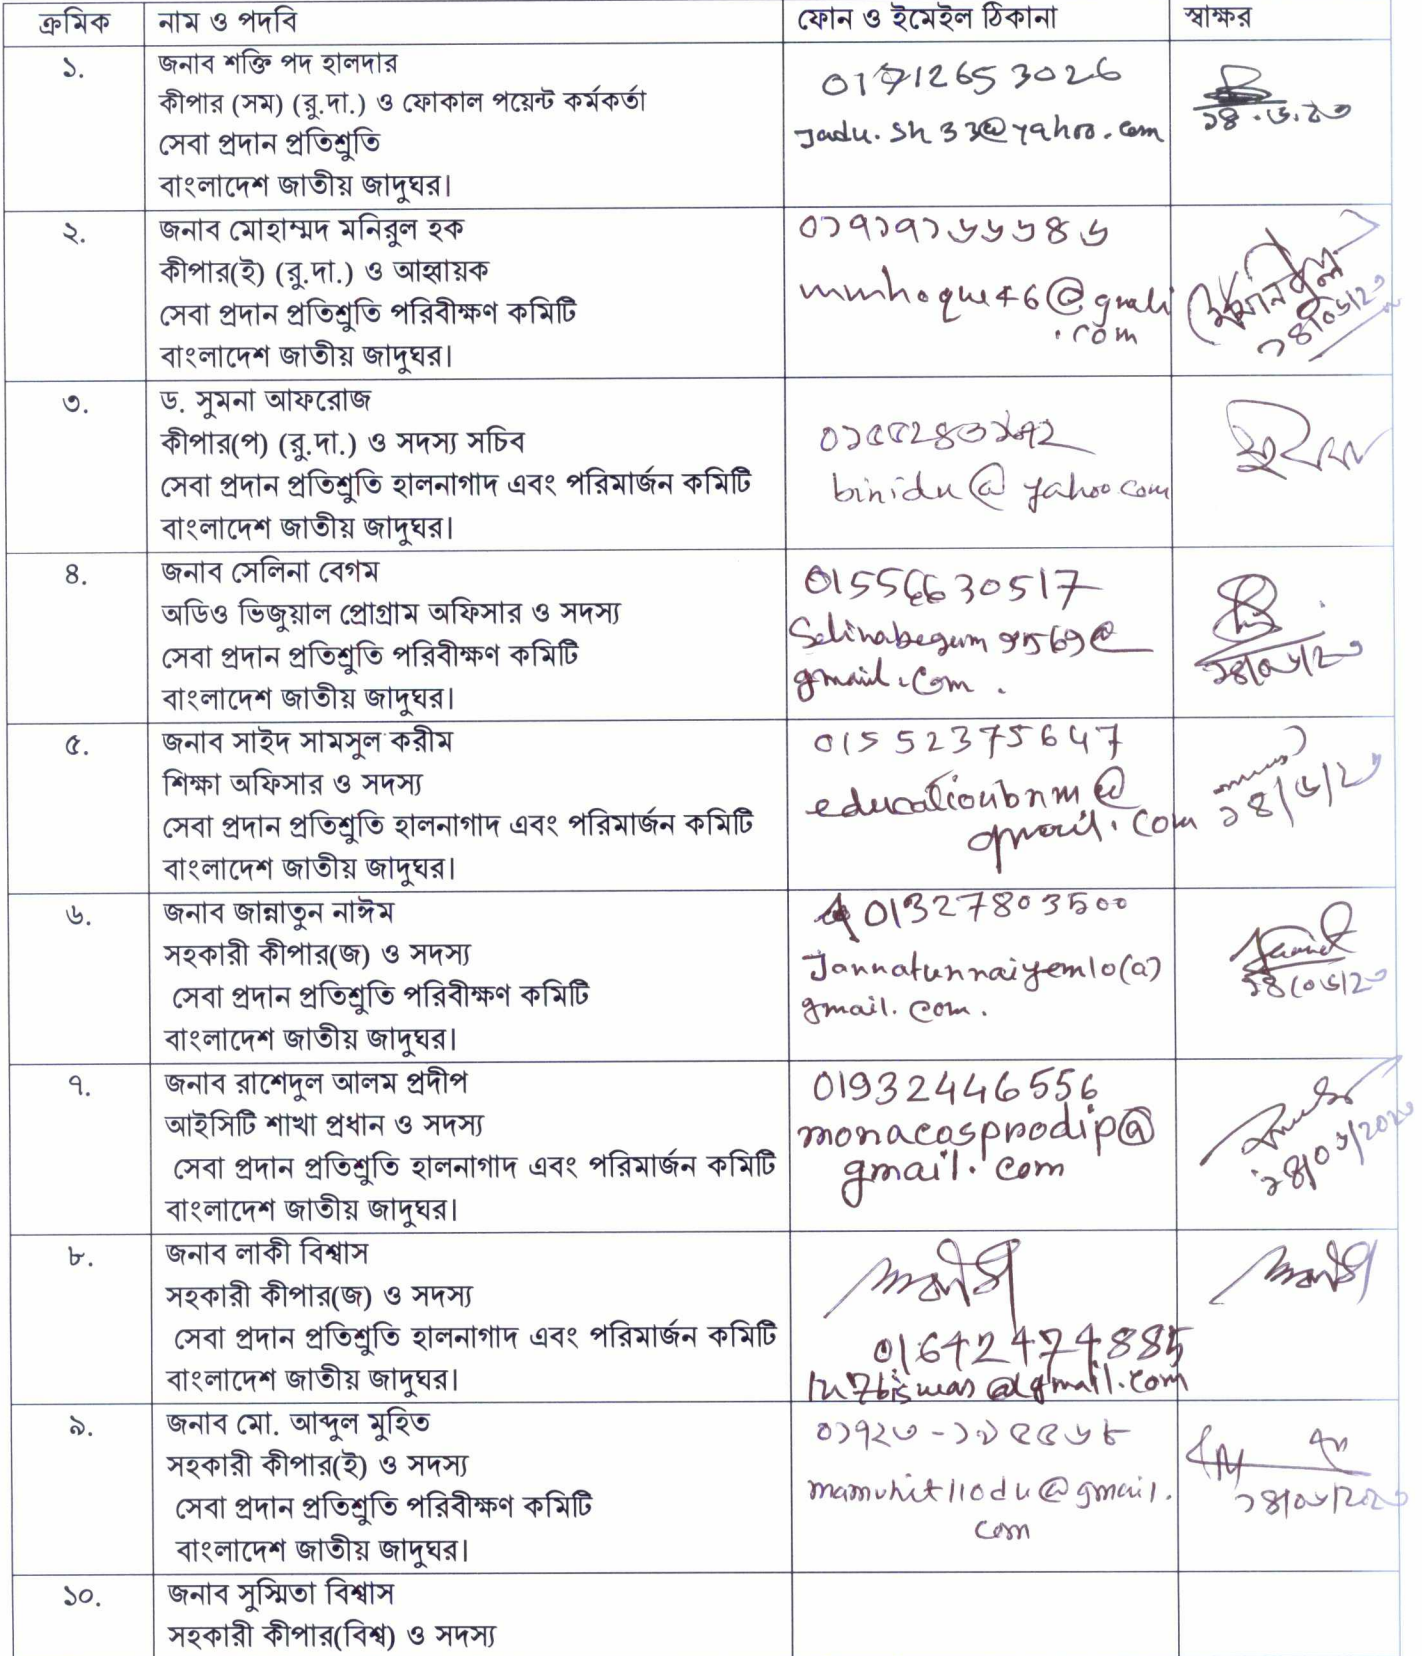 ক্রমিক	নাম ও পদবি	ফোন ও ইমেইল ঠিকানা	স্বাক্ষর
১.	জনাব শক্তি পদ হালদার
কীপার (সম) (রু.দা.) ও ফোকাল পয়েন্ট কর্মকর্তা
সেবা প্রদান প্রতিশ্রুতি
বাংলাদেশ জাতীয় জাদুঘর।
01712653026
Jadu.sh33@yahoo.com
১৪.৬.২৩
২.	জনাব মোহাম্মদ মনিরুল হক
কীপার(ই) (রু.দা.) ও আহ্বায়ক
সেবা প্রদান প্রতিশ্রুতি পরিবীক্ষণ কমিটি
বাংলাদেশ জাতীয় জাদুঘর।
০১৭১৭১৬৬৬৪৬
.com
৩.	ড. সুমনা আফরোজ
কীপার(প) (রু.দা.) ও সদস্য সচিব
সেবা প্রদান প্রতিশ্রুতি হালনাগাদ এবং পরিমার্জন কমিটি
বাংলাদেশ জাতীয় জাদুঘর।
binidu@yahoo.com
৪.	জনাব সেলিনা বেগম
অডিও ভিজুয়াল প্রোগ্রাম অফিসার ও সদস্য
সেবা প্রদান প্রতিশ্রুতি পরিবীক্ষণ কমিটি
বাংলাদেশ জাতীয় জাদুঘর।
01556630517
gmail.com.
১৪/০৬/২৩
৫.	জনাব সাইদ সামসুল করীম
শিক্ষা অফিসার ও সদস্য
সেবা প্রদান প্রতিশ্রুতি হালনাগাদ এবং পরিমার্জন কমিটি
বাংলাদেশ জাতীয় জাদুঘর।
01552375647
educationbnm@
gmail.com
১৪/৬/২৩
৬.	জনাব জান্নাতুন নাঈম
সহকারী কীপার(জ) ও সদস্য
সেবা প্রদান প্রতিশ্রুতি পরিবীক্ষণ কমিটি
বাংলাদেশ জাতীয় জাদুঘর।
01327803500
Jannatunnaiyem10(a)
gmail.com.
১৪/০৬/২৩
৭.	জনাব রাশেদুল আলম প্রদীপ
আইসিটি শাখা প্রধান ও সদস্য
সেবা প্রদান প্রতিশ্রুতি হালনাগাদ এবং পরিমার্জন কমিটি
বাংলাদেশ জাতীয় জাদুঘর।
01932446556
monacasprodip@
gmail.com
১৪/০৬/২০২৩
৮.	জনাব লাকী বিশ্বাস
সহকারী কীপার(জ) ও সদস্য
সেবা প্রদান প্রতিশ্রুতি হালনাগাদ এবং পরিমার্জন কমিটি
বাংলাদেশ জাতীয় জাদুঘর।
01642474885
৯.	জনাব মো. আব্দুল মুহিত
সহকারী কীপার(ই) ও সদস্য
সেবা প্রদান প্রতিশ্রুতি পরিবীক্ষণ কমিটি
বাংলাদেশ জাতীয় জাদুঘর।
০১৭২৩-১৯৫৫৬৮
mamuhit110du@gmail.
com
১৪/০৬/২০২৩
১০.	জনাব সুস্মিতা বিশ্বাস
সহকারী কীপার(বিশ্ব) ও সদস্য